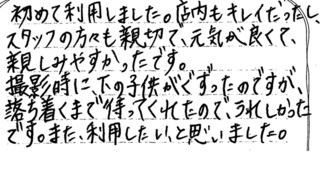 初めて利用しました。店内もキレイだったし、
スタッフの方々も親切で、元気が良くて、
親しみやすかったです。
撮影時に、下の子供がぐずったのですが、
落ち着くまで待ってくれたので、うれしかった
です。また、利用したい、と思いました。